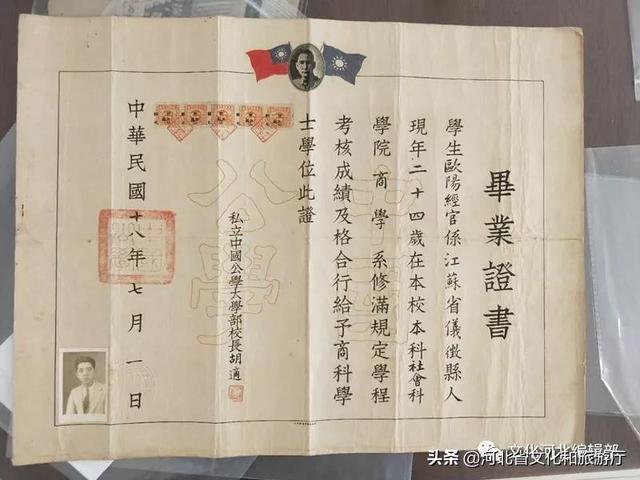 畢業證書
學生歐陽經官係江蘇省儀徵縣人
現年二十四歲在本校本科社會科
學院商學系修滿規定學程
考核成績及格合行給予商科學
士學位此證
私立中國公學大學部校長胡適
中華民國十八年七月一日
中國
公學
文化河北编辑部
头条 @河北省文化和旅游厅